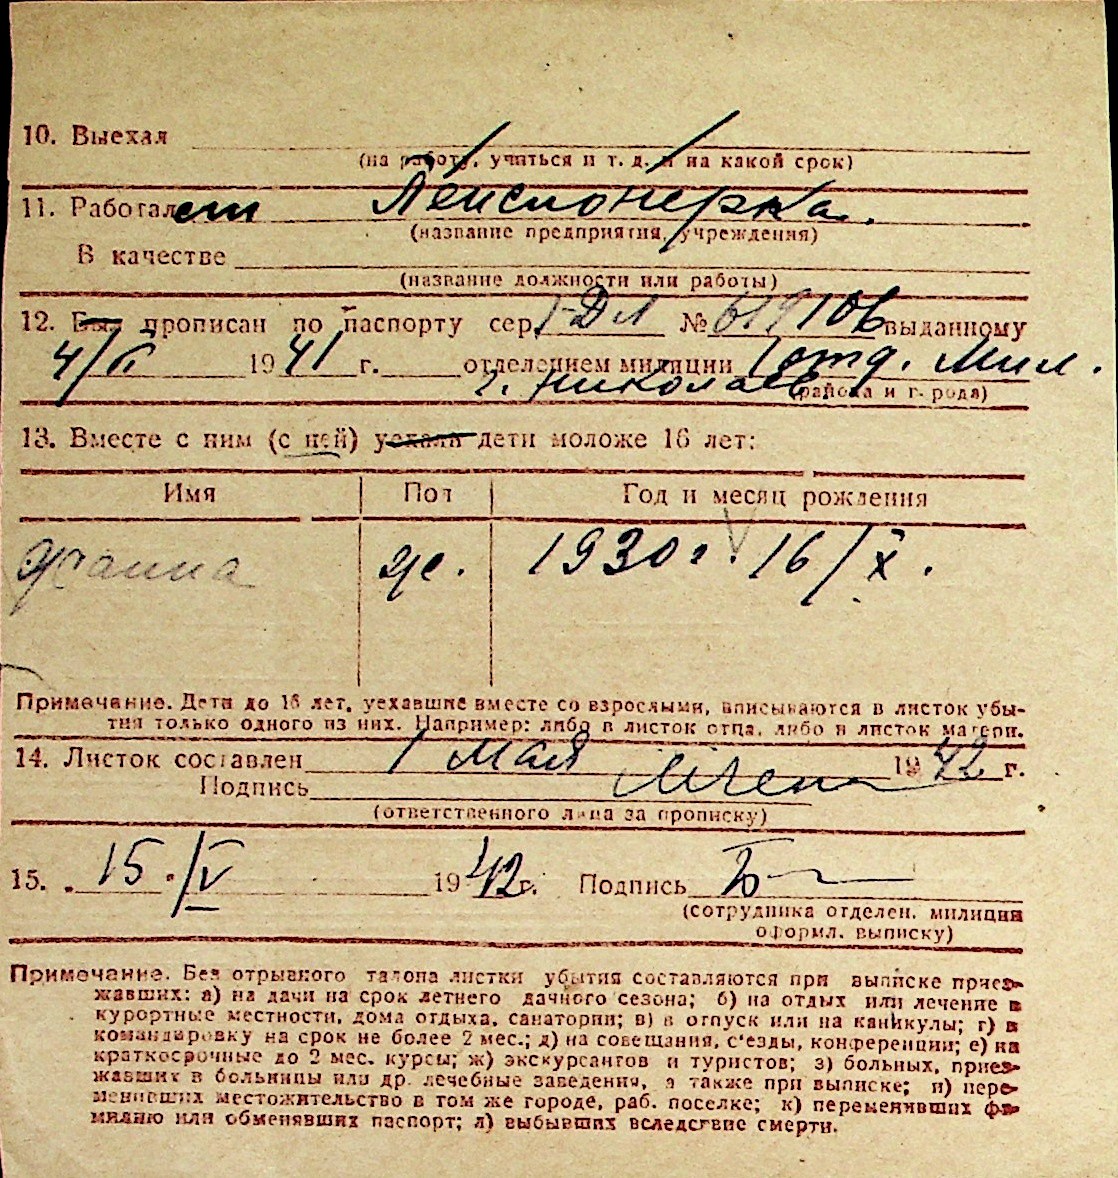 10. Выехал
(на работу, учиться и т. д. и на какой срок)
11. Работает Пенсионерка.
(название предприятия, учреждения)
В качестве
(название должности или работы)
12. Был прописан по паспорту сер. I-ДЛ № 619106 выданному
4/II 1941 г. отделением милиции 1 отд. Мил.
г. Николаев. (района и города)
13. Вместе с ним (с ней) уехали дети моложе 16 лет:
Имя Пол Год и месяц рождения
Жанна ж. 1930 г. 16/X.
Примечание. Дети до 16 лет, уехавшие вместе со взрослыми, вписываются в листок убы-
тия только одного из них. Например: либо в листок отца, либо в листок матери.
14. Листок составлен 1 мая 1942 г.
Подпись
(ответственного лица за прописку)
15. 15./V 1942 г. Подпись
(сотрудника отделен. милиции
оформл. выписку)
Примечание. Без отрывного талона листки убытия составляются при выписке приез-
жавших: а) на дачи на срок летнего дачного сезона; б) на отдых или лечение в
курортные местности, дома отдыха, санатории; в) в отпуск или на каникулы; г) в
командировку на срок не более 2 мес.; д) на совещания, с'езды, конференции; е) на
краткосрочные до 2 мес. курсы; ж) экскурсантов и туристов; з) больных, приез-
жавших в больницы или др. лечебные заведения, а также при выписке; и) пере-
менивших местожительство в том же городе, раб. поселке; к) переменивших фа-
милию или обменявших паспорт; л) выбывших вследствие смерти.